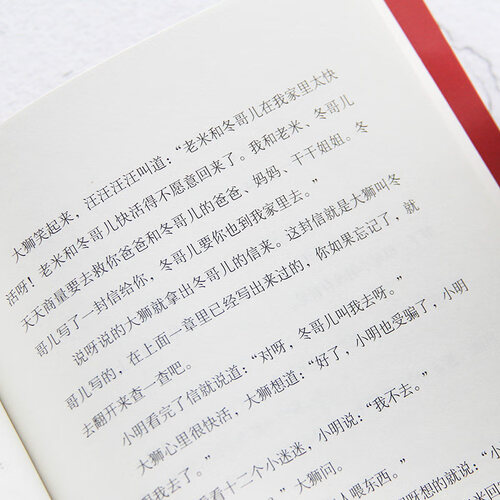 大狮笑起来，汪汪汪汪叫道：“老米和冬哥儿在我家里太快
活呀！老米和冬哥儿快活得不愿意回来了。我和老米、冬哥儿
天天商量要去救你爸爸和冬哥儿的爸爸、妈妈、干干姐姐。冬
哥儿写了一封信给你，冬哥儿要你也到我家里去。”
说呀说的大狮就拿出冬哥儿的信来。这封信就是大狮叫冬
哥儿写的，在上面一章里已经写出来过的，你如果忘记了，就
去翻开来查一查吧。
小明看完了信就说道：“对呀，冬哥儿叫我去呀。”
大狮心里很快活，大狮想道：“好了，小明也受骗了，小明
跟我去了。”
看看十二个小迷迷，小明说：“我不去。”
”大狮问。
人喂东西。”
呀想的就说：“小